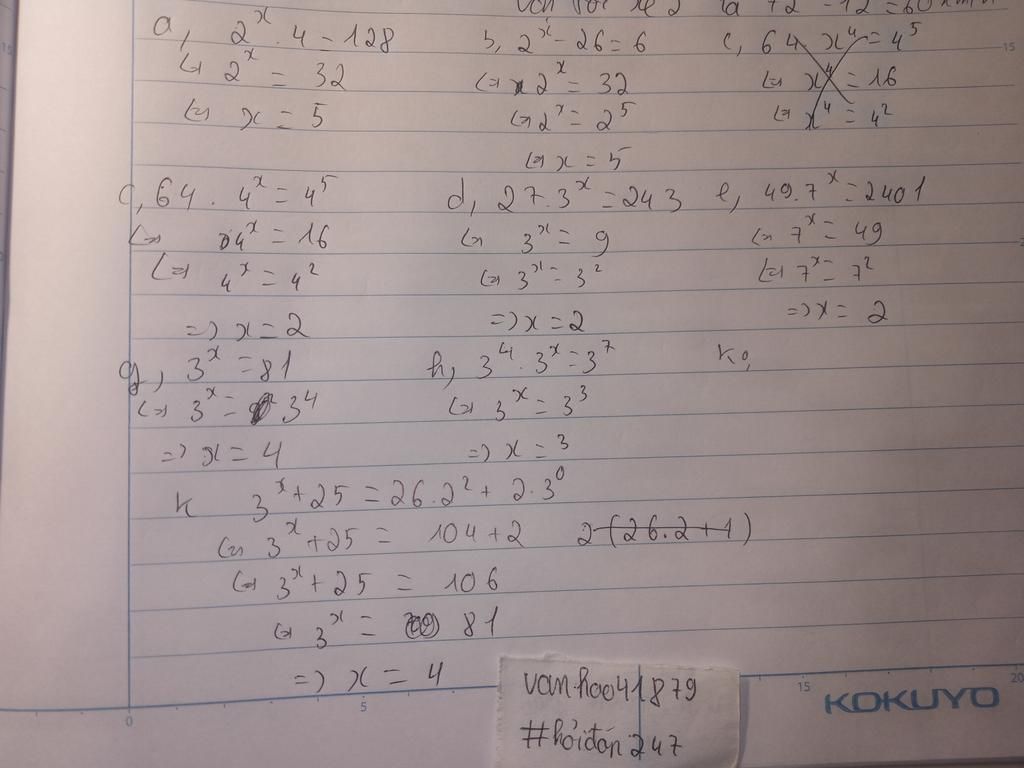 72 - 12 = 60
15
a, 2^x . 4 = 128
⇔ 2^x = 32
⇔ x = 5
b, 2^x - 26 = 6
⇔ 2^x = 32
⇔ 2^x = 2^5
⇔ x = 5
c, 64 x^4 = 4^5
⇔ x^4 = 16
⇔ x^4 = 4^2
c, 64 . 4^x = 4^5
⇔ 4^x = 16
⇔ 4^x = 4^2
=> x = 2
d, 27 . 3^x = 243
⇔ 3^x = 9
⇔ 3^x = 3^2
=> x = 2
e, 49 . 7^x = 2401
⇔ 7^x = 49
⇔ 7^x = 7^2
=> x = 2
g, 3^x = 81
⇔ 3^x = 3^4
=> x = 4
h, 3^4 . 3^x = 3^7
⇔ 3^x = 3^3
=> x = 3
k 3^x + 25 = 26 . 2^2 + 2 . 3^0
⇔ 3^x + 25 = 104 + 2 2 (26 . 2 + 1)
⇔ 3^x + 25 = 106
⇔ 3^x = 81
=> x = 4
vanhoo41879
#hỏiđáp247
0 5 15 20
KOKUYO